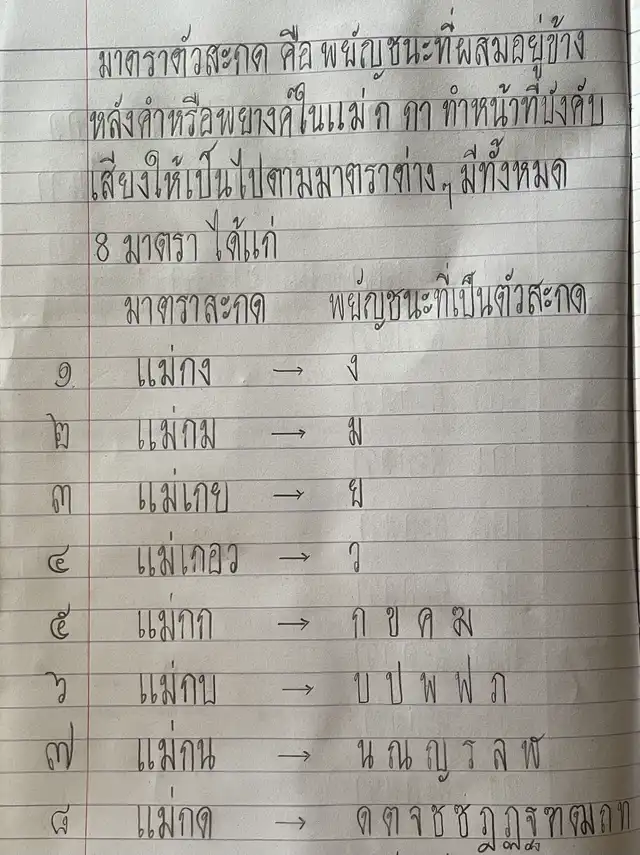 มาตราตัวสะกด คือ พยัญชนะที่ผสมอยู่ข้าง
หลังคำหรือพยางค์ในแม่ ก กา ทำหน้าที่บังคับ
เสียงให้เป็นไปตามมาตราต่าง ๆ มีทั้งหมด
8 มาตรา ได้แก่
มาตราสะกด พยัญชนะที่เป็นตัวสะกด
๑. แม่กง → ง
๒ แม่กม → ม
๓ แม่เกย → ย
๔ แม่เกอว → ว
๕ แม่กก → ก ข ค ฆ
๖ แม่กบ → บ ป พ ฟ ภ
๗ แม่กน → น ณ ญ ร ล ฬ
๘ แม่กด → ด ต จ ช ซ ฎ ฏ ฐ ฑ ฒ ถ ท